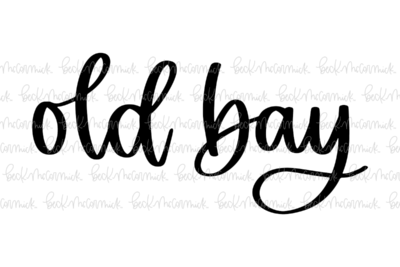 old bay